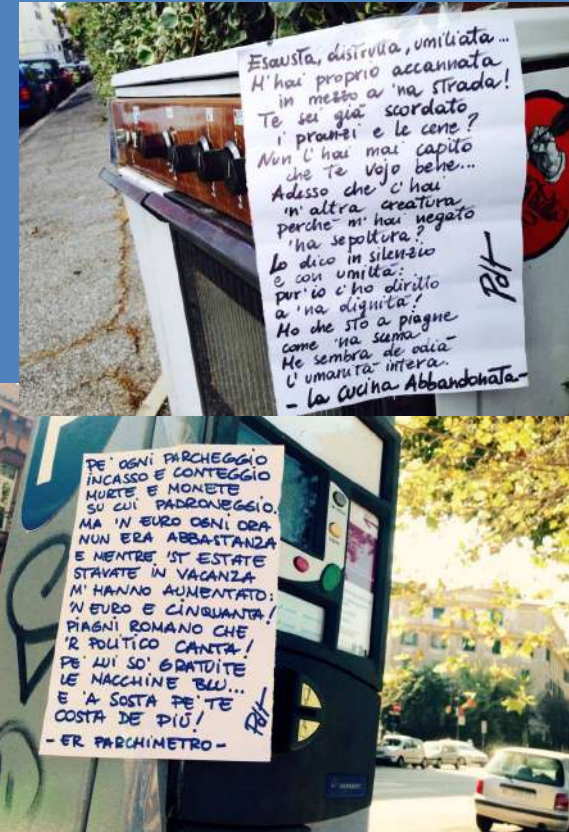 Esausta, distrutta, umiliata...
M'hai proprio accannata
in mezzo a 'na strada!
Te sei già scordato
i pranzi e le cene?
Nun l'hai mai capito
che te vojo bene...
Adesso che c'hai
'n'altra creatura
perchè m'hai negato
'na sepoltura?
Lo dico in silenzio
e con umiltà:
pur'io c'ho diritto
a 'na dignità!
Mo che sto a piagne
come 'na scema
Me sembra de odià
l'umanità intera.
- La Cucina Abbandonata -
Pdt
PE' OGNI PARCHEGGIO
INCASSO E CONTEGGIO
MURTE E MONETE
SU CUI PADRONEGGIO.
MA 'N EURO OGNI ORA
NUN ERA ABBASTANZA
E MENTRE 'ST ESTATE
STAVATE IN VACANZA
M'HANNO AUMENTATO:
'N EURO E CINQUANTA!
PIAGNI ROMANO CHE
'R POLITICO CANTA!
PE' LUI SO' GRATUITE
LE MACCHINE BLU...
E 'A SOSTA PE' TE
COSTA DE PIÙ!
- ER PARCHIMETRO -
Pdt